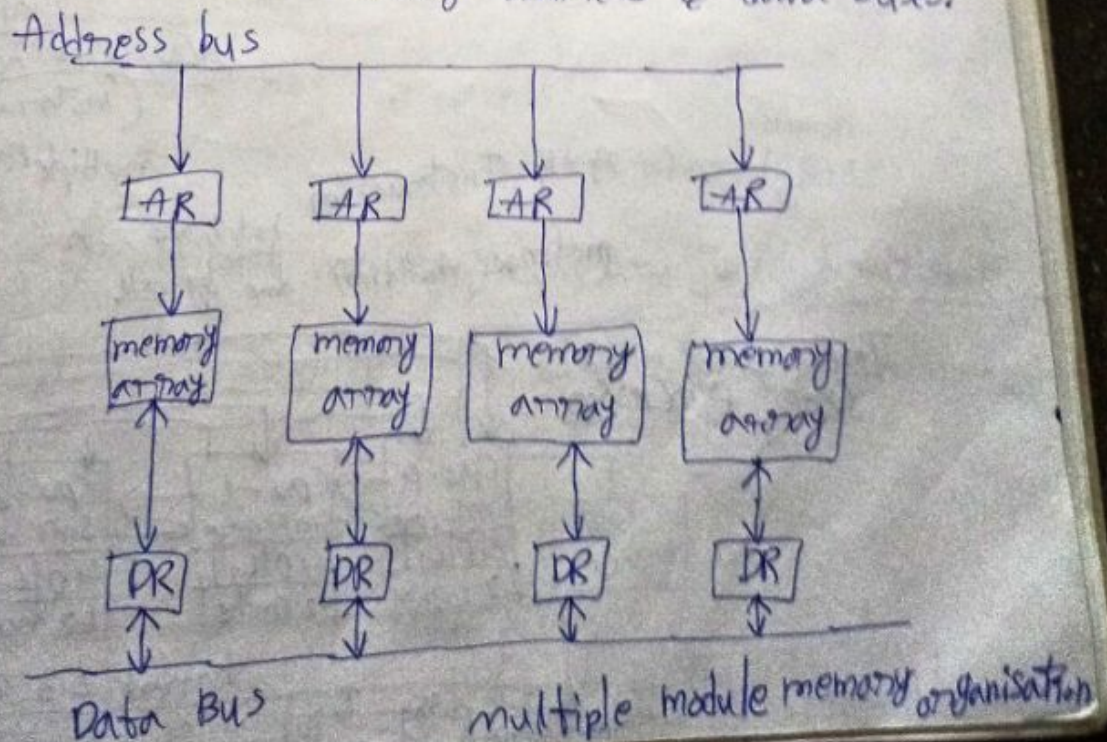 Address bus
AR AR AR AR
memory array memory array memory array memory array
DR DR DR DR
Data Bus
multiple module memory organisation